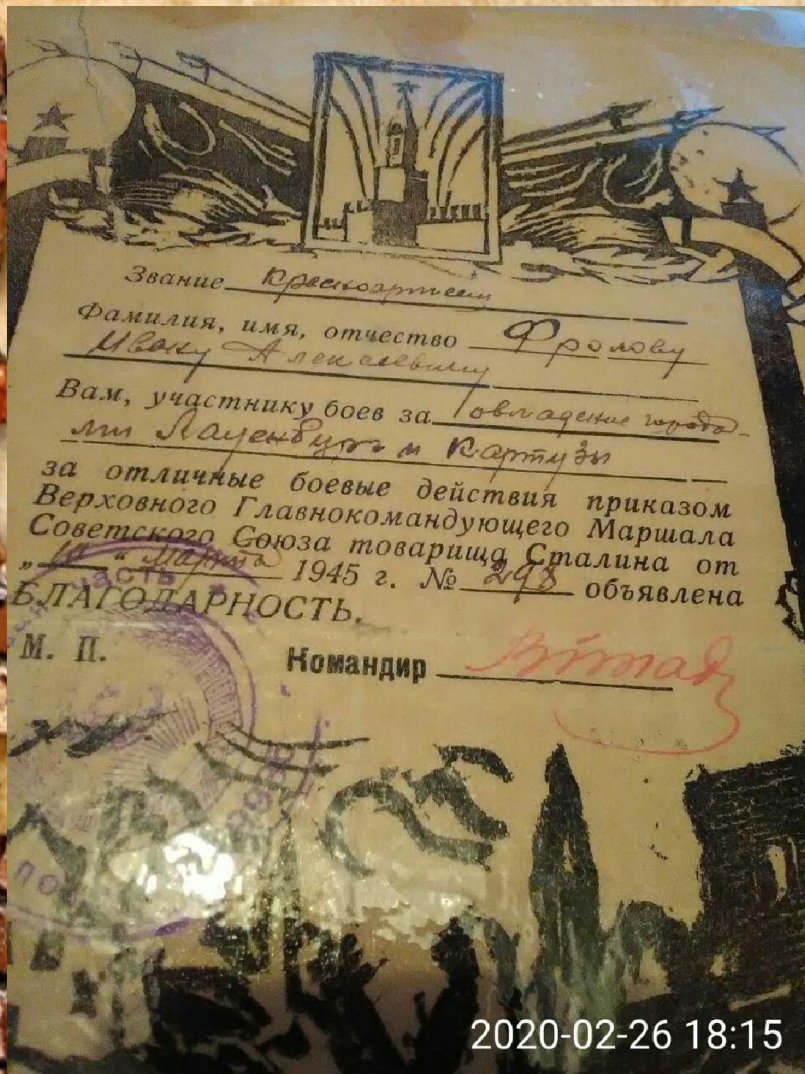 Звание красноармеец
Фамилия, имя, отчество Фролову
Ивану Алексеевичу
Вам, участнику боев за овладение города-
ми Лауенбург и Картузы
за отличные боевые действия приказом
Верховного Главнокомандующего Маршала
Советского Союза товарища Сталина от
„10“ Марта 1945 г. № 298 объявлена
БЛАГОДАРНОСТЬ.
М. П.
Командир
часть
2020-02-26 18:15